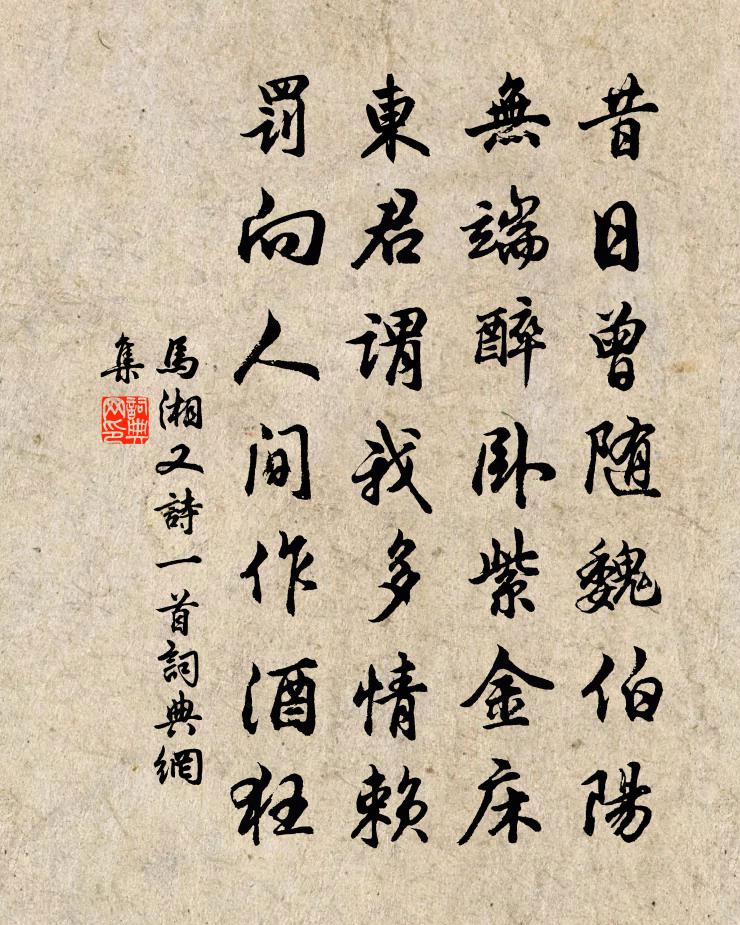 昔日曾随魏伯陽
無端醉卧紫金床
東君謂我多情賴
罰向人間作酒狂
馬湘又詩一首詞典網
集
詞典
网印